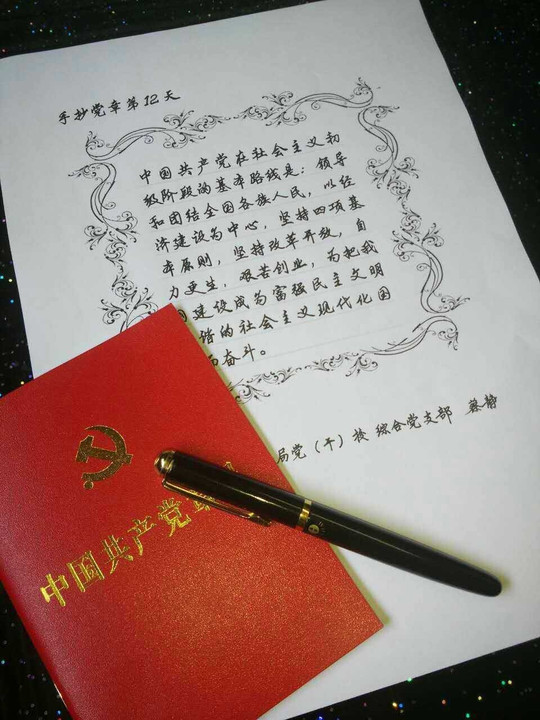 手抄党章第12天
中国共产党在社会主义初
级阶段的基本路线是：领导
和团结全国各族人民，以经
济建设为中心，坚持四项基
本原则，坚持改革开放，自
力更生，艰苦创业，为把我
国建设成为富强民主文明
谐的社会主义现代化国
而奋斗。
局党（干）校 综合党支部 蔡静
中国共产党章